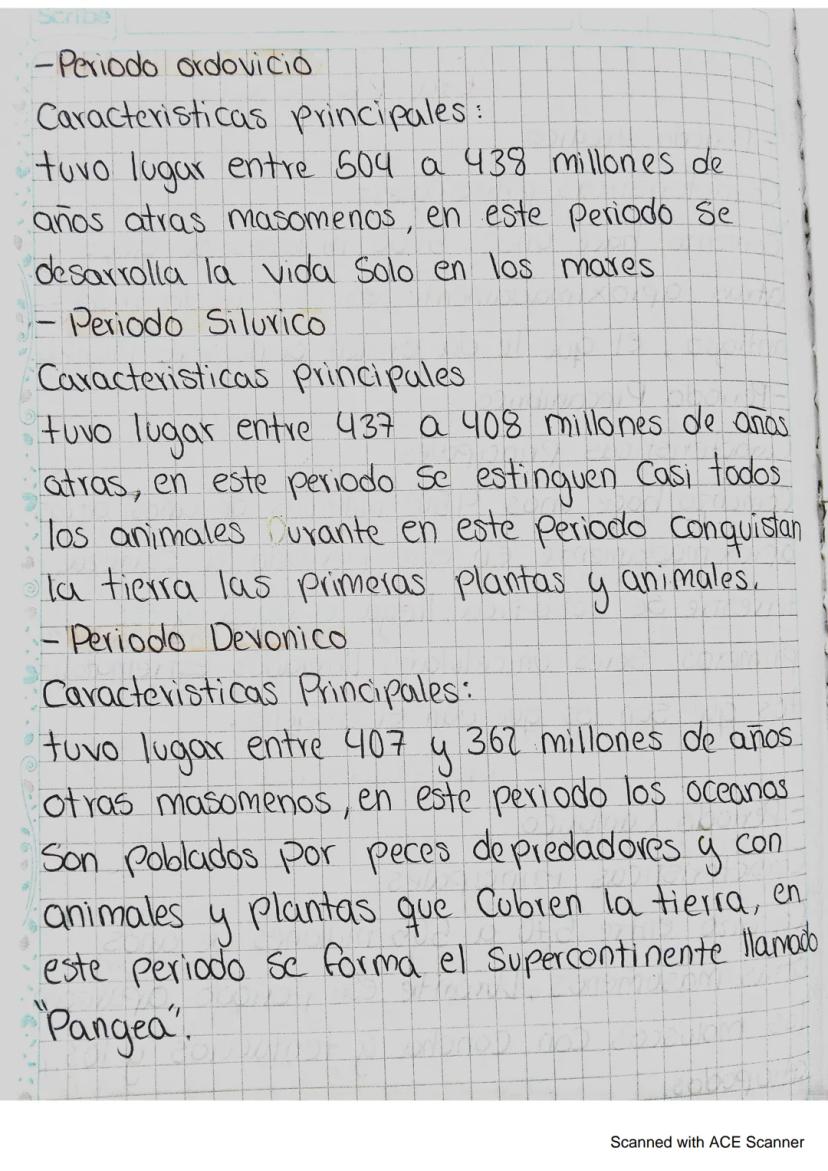 Scribe
-Periodo ordovicio
Caracteristicas principales:
tuvo lugar entre 504 a 438 millones de
años atras masomenos, en este periodo se
desarrolla la vida solo en los mares
- Periodo Silurico
Caracteristicas principales
tuvo lugar entre 437 a 408 millones de años
atras, en este periodo se estinguen casi todos
los animales Durante en este periodo conquistan
la tierra las primeras plantas y animales.
- Periodo Devonico
Caracteristicas Principales:
tuvo lugar entre 407 y 362 millones de años
otras masomenos, en este periodo los oceanos
son poblados por peces depredadores y con
animales y plantas que cubren la tierra, en
este periodo se forma el supercontinente llamado
"Pangea".
Scanned with ACE Scanner